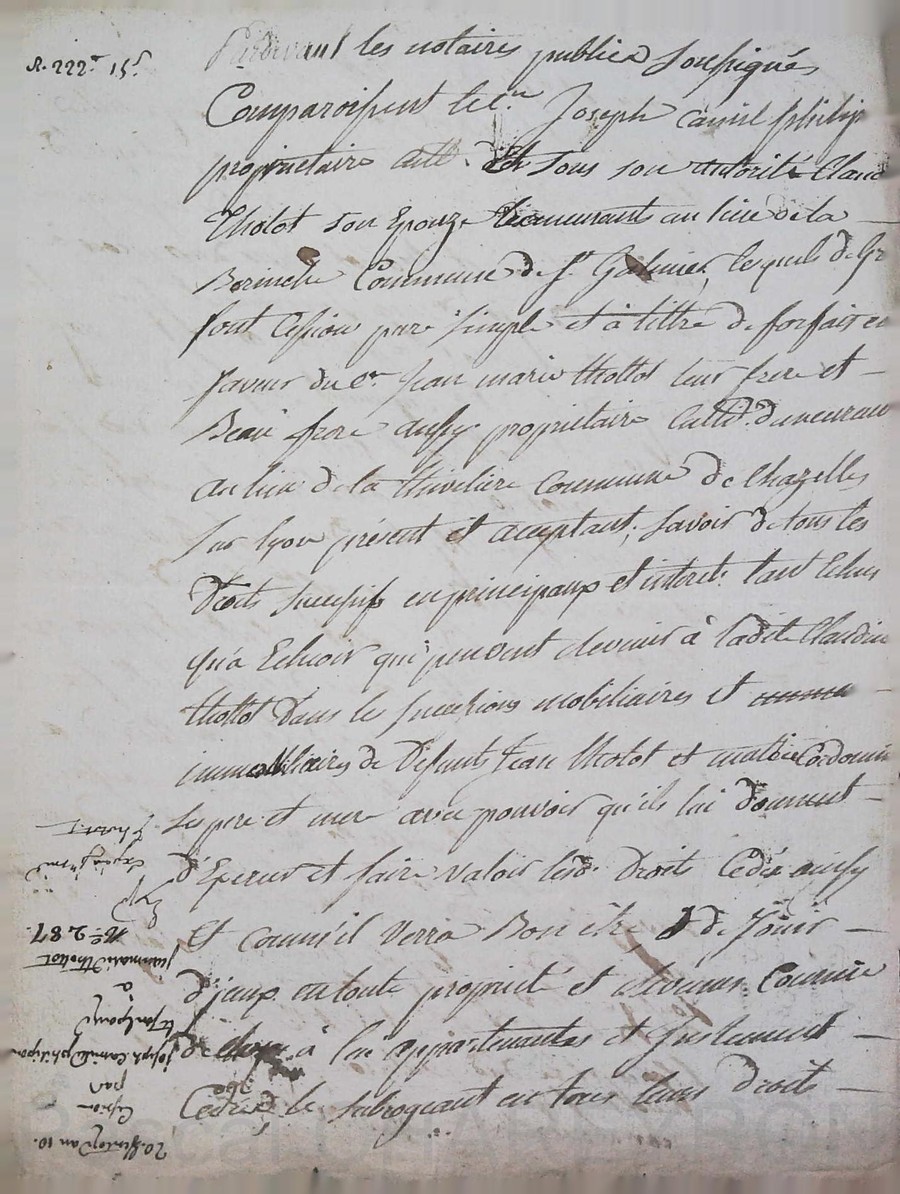 R. 222 15
Pardevant les notaires publics soussignés
Comparoissent le c.en Joseph camil philip
propriétaire et sous son autorité Claud
Tholot son Epouze demeurants au lieu de la
Commune de St Galmier, lesquels de Gr
font Cession pure simple et à tittre de forfait en
faveur du c.en Jean marie thollot leur frere et
Beau frere aussy propriétaire demeurant
au lieu de la thiveliere commune de Chazelles
sur lyon présent et acceptant; savoir de tous les
Droits successifs en principaux et interets tant Echus
qu'a Echoir qui peuvent devenir à ladite Claudine
thollot Dans les successions mobiliaires et
immobiliaires de Defunts Jean tholot et
ses pere et mere avec pouvoir qu'ils lui donnent
d'Exercer et faire valoir lesd. Droits Cedés ainsy
et comm'il verra Bon être & de Jouir
d'jceux en toute propriété et comme
de chose à lui appartenantes et justement
Cedée le subrogeant en tous leurs droits
20. an 10.
Cession
par
Joseph Camil philipon
et son Epouze
a
jean marie thollot
N.º 287.